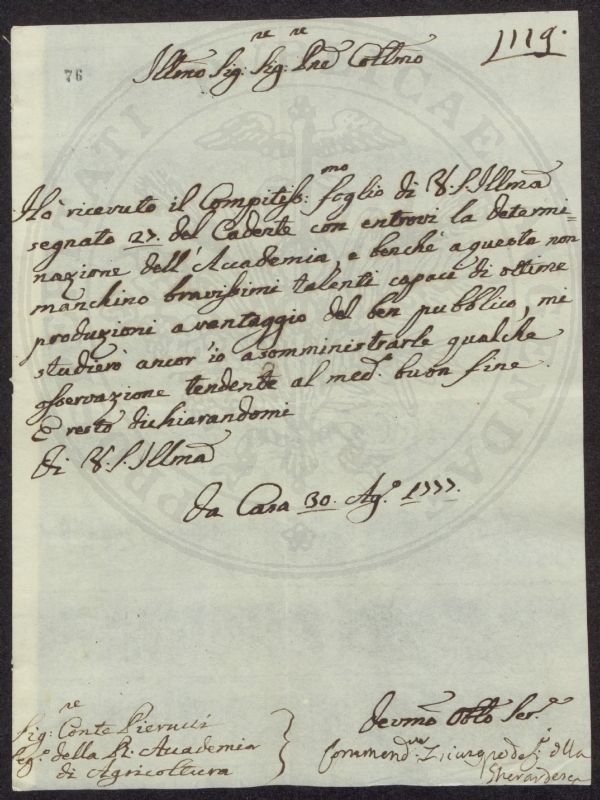 1119.
76
Illmo Sig:re Sig:re Pne Colmo
Hò ricevuto il Compitiss:mo foglio di V.S. Illma
segnato 27. del Cadente con entrovi la determi=
nazione dell'Accademia, e benchè a questa non
manchino bravissimi talenti capaci di ottime
produzioni a vantaggio del ben pubblico, mi
studierò ancor io a somministrarle qualche
osservazione tendente al med.o buon fine.
E resto dichiarandomi
di V.S. Illma
da Casa 30. Ag.o 1777.
Sig:re Conte Pierucci
Seg.o della Rl. Accademia
di Agricoltura
Devmo Obblo Ser.e
Commend.re della
Gherardesca